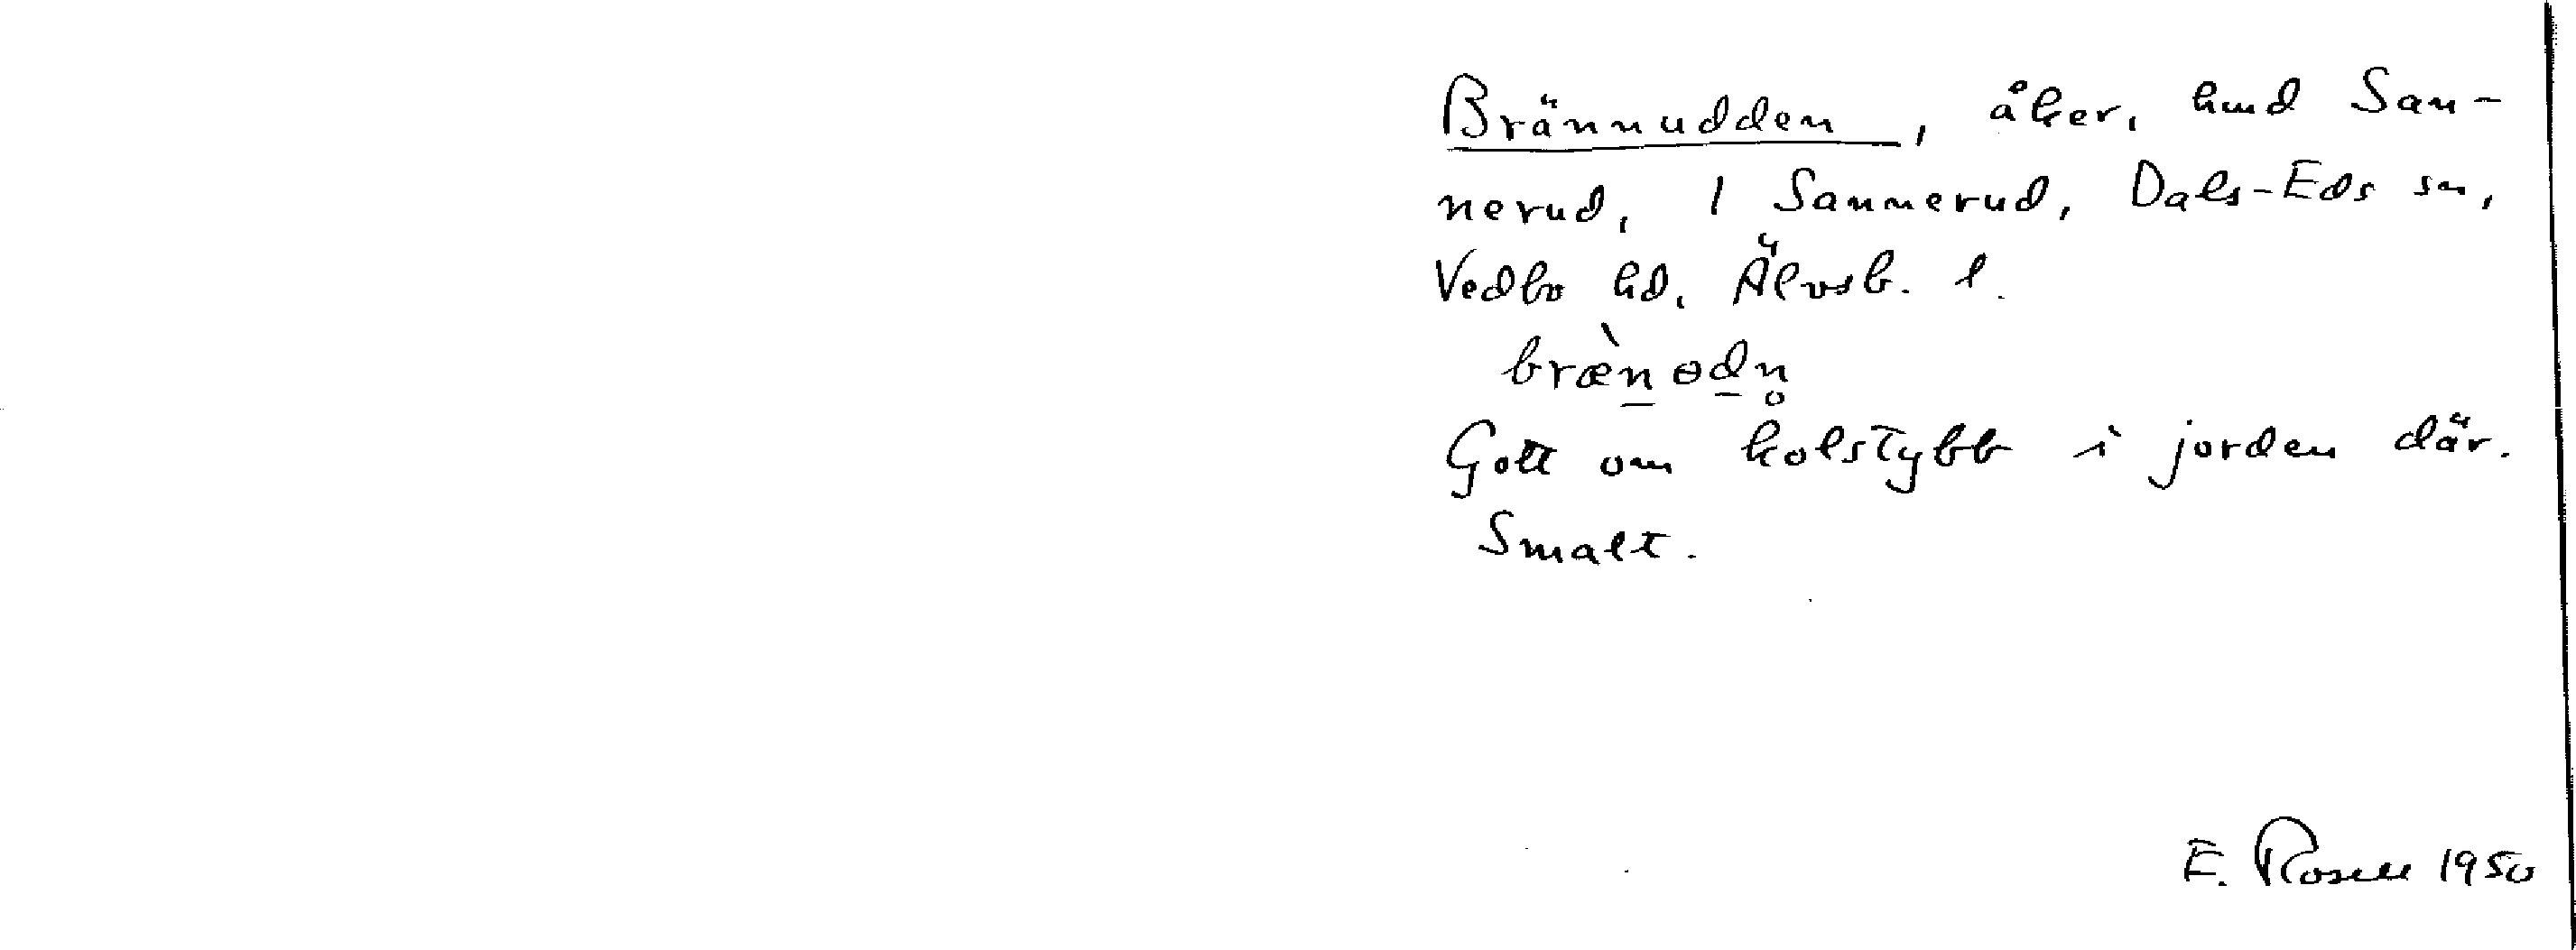 Brännudden, åker, hmd San-
nerud, 1 Sannerud, Dals-Eds sn,
Vedbo hd, Älvsb. l.
bræ̀n̲ɵd̲n̥
Gott om kolstybb i jorden där.
Smalt.
E. Rosell 1950